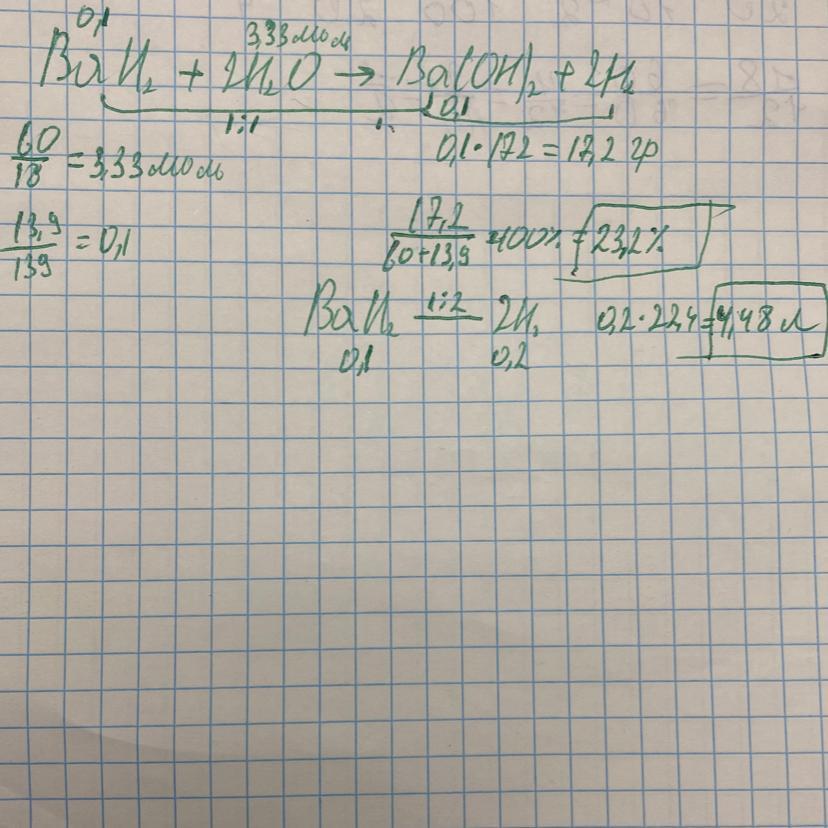 0,1 3,33 моль
BaH₂ + 2H₂O → Ba(OH)₂ + 2H₂
1:1 0,1
60/18 = 3,33 моль 0,1·172 = 17,2 гр
13,9/139 = 0,1 17,2/60+13,9 ·100% = 23,2%
BaH₂ 1:2 2H₂ 0,2·22,4=4,48 л
0,1 0,2